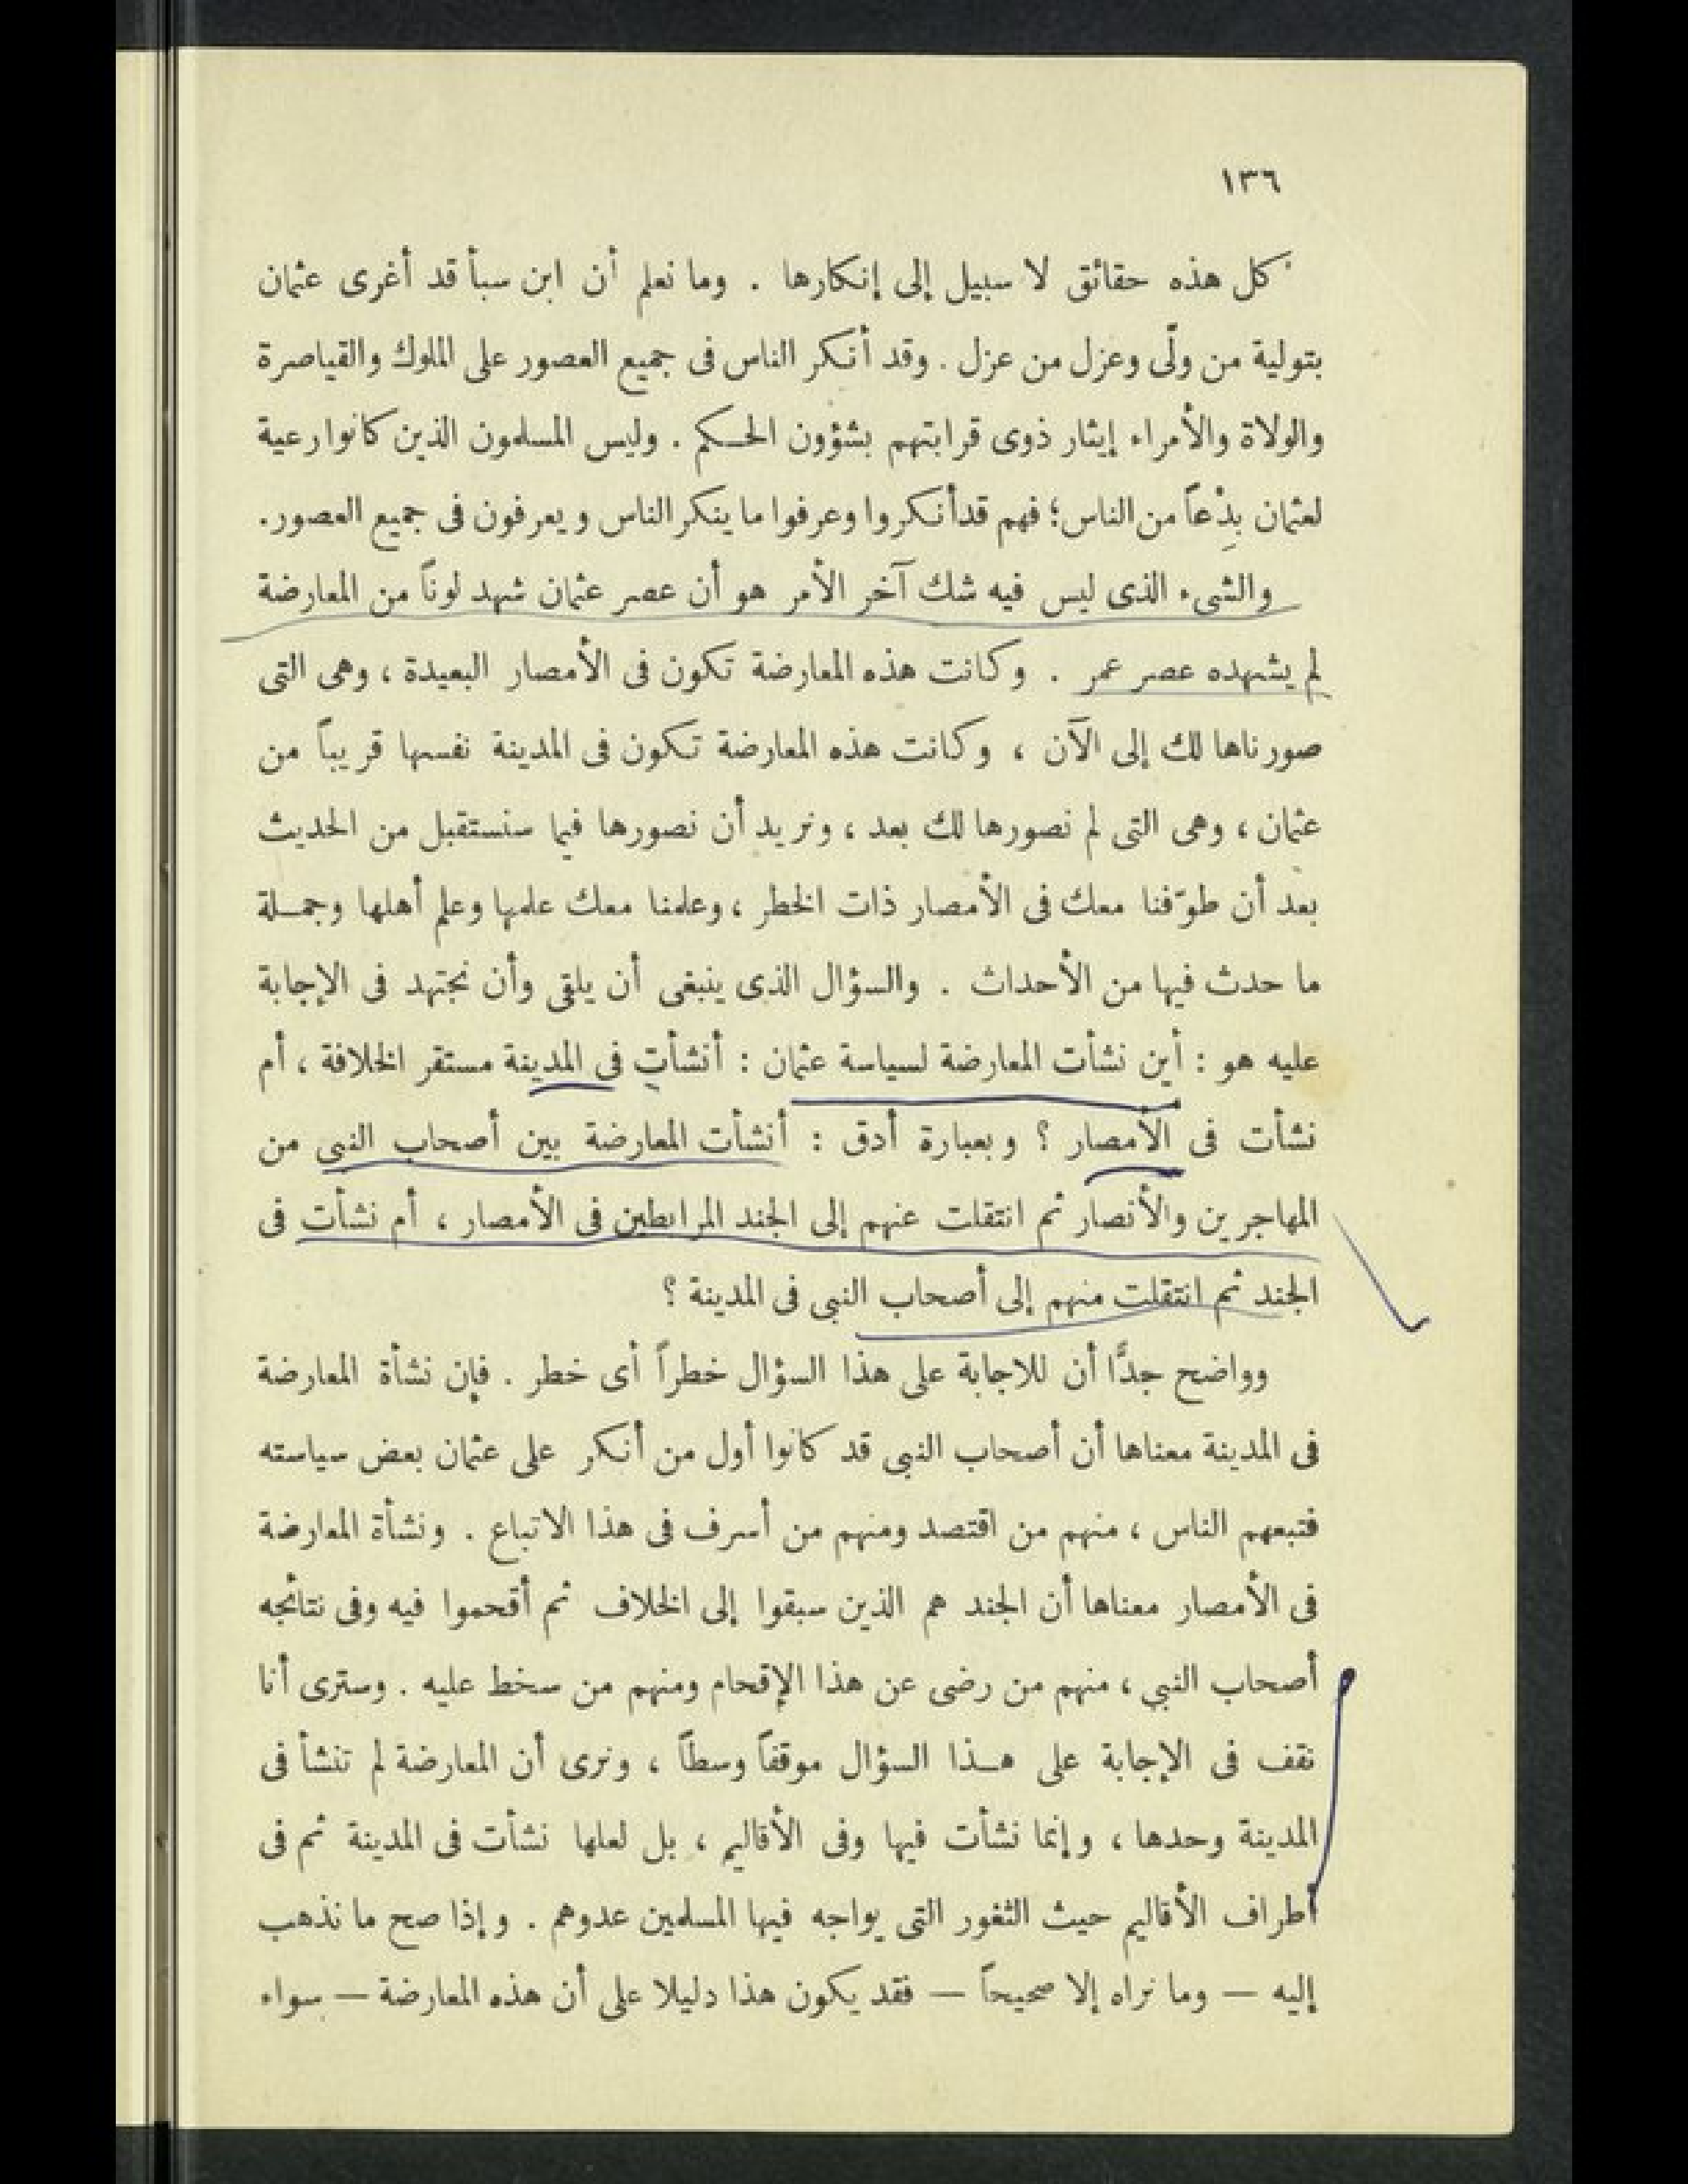 ١٣٦
كل هذه حقائق لا سبيل إلى إنكارها . وما نعلم أن ابن سبأ قد أغرى عثمان
بتولية من ولّى وعزل من عزل . وقد أنكر الناس فى جميع العصور على الملوك والقياصرة
والولاة والأمراء إيثار ذوى قرابتهم بشؤون الحكم . وليس المسلمون الذين كانوا رعية
لعثمان بِدْعاً من الناس؛ فهم قد أنكروا وعرفوا ما ينكر الناس ويعرفون فى جميع العصور.
والشىء الذى ليس فيه شك آخر الأمر هو أن عصر عثمان شهد لوناً من المعارضة
لم يشهده عصر عمر . وكانت هذه المعارضة تكون فى الأمصار البعيدة ، وهى التى
صورناها لك إلى الآن ، وكانت هذه المعارضة تكون فى المدينة نفسها قريباً من
عثمان ، وهى التى لم نصورها لك بعد ، ونريد أن نصورها فيما سنستقبل من الحديث
بعد أن طوّفنا معك فى الأمصار ذات الخطر ، وعلمنا معك علمها وعلم أهلها وجملة
ما حدث فيها من الأحداث . والسؤال الذى ينبغى أن يلقى وأن نجتهد فى الإجابة
عليه هو : أين نشأت المعارضة لسياسة عثمان : أنشأتِ فى المدينة مستقر الخلافة ، أم
نشأت فى الأمصار ؟ وبعبارة أدق : أنشأت المعارضة بين أصحاب النبى من
المهاجرين والأنصار ثم انتقلت عنهم إلى الجند المرابطين فى الأمصار ، أم نشأت فى
الجند ثم انتقلت منهم إلى أصحاب النبى فى المدينة ؟
وواضح جدًّا أن للاجابة على هذا السؤال خطراً أى خطر . فإن نشأة المعارضة
فى المدينة معناها أن أصحاب النبى قد كانوا أول من أنكر على عثمان بعض سياسته
فتبعهم الناس ، منهم من اقتصد ومنهم من أسرف فى هذا الاتباع . ونشأة المعارضة
فى الأمصار معناها أن الجند هم الذين سبقوا إلى الخلاف ثم أقحموا فيه وفى نتائجه
أصحاب النبي ، منهم من رضى عن هذا الإقحام ومنهم من سخط عليه . وسترى أنا
نقف فى الإجابة على هذا السؤال موقفاً وسطاً ، ونرى أن المعارضة لم تنشأ فى
المدينة وحدها ، وإنما نشأت فيها وفى الأقاليم ، بل لعلها نشأت فى المدينة ثم فى
أطراف الأقاليم حيث الثغور التى يواجه فيها المسلمين عدوهم . وإذا صح ما نذهب
إليه — وما نراه إلا صحيحاً — فقد يكون هذا دليلا على أن هذه المعارضة — سواء